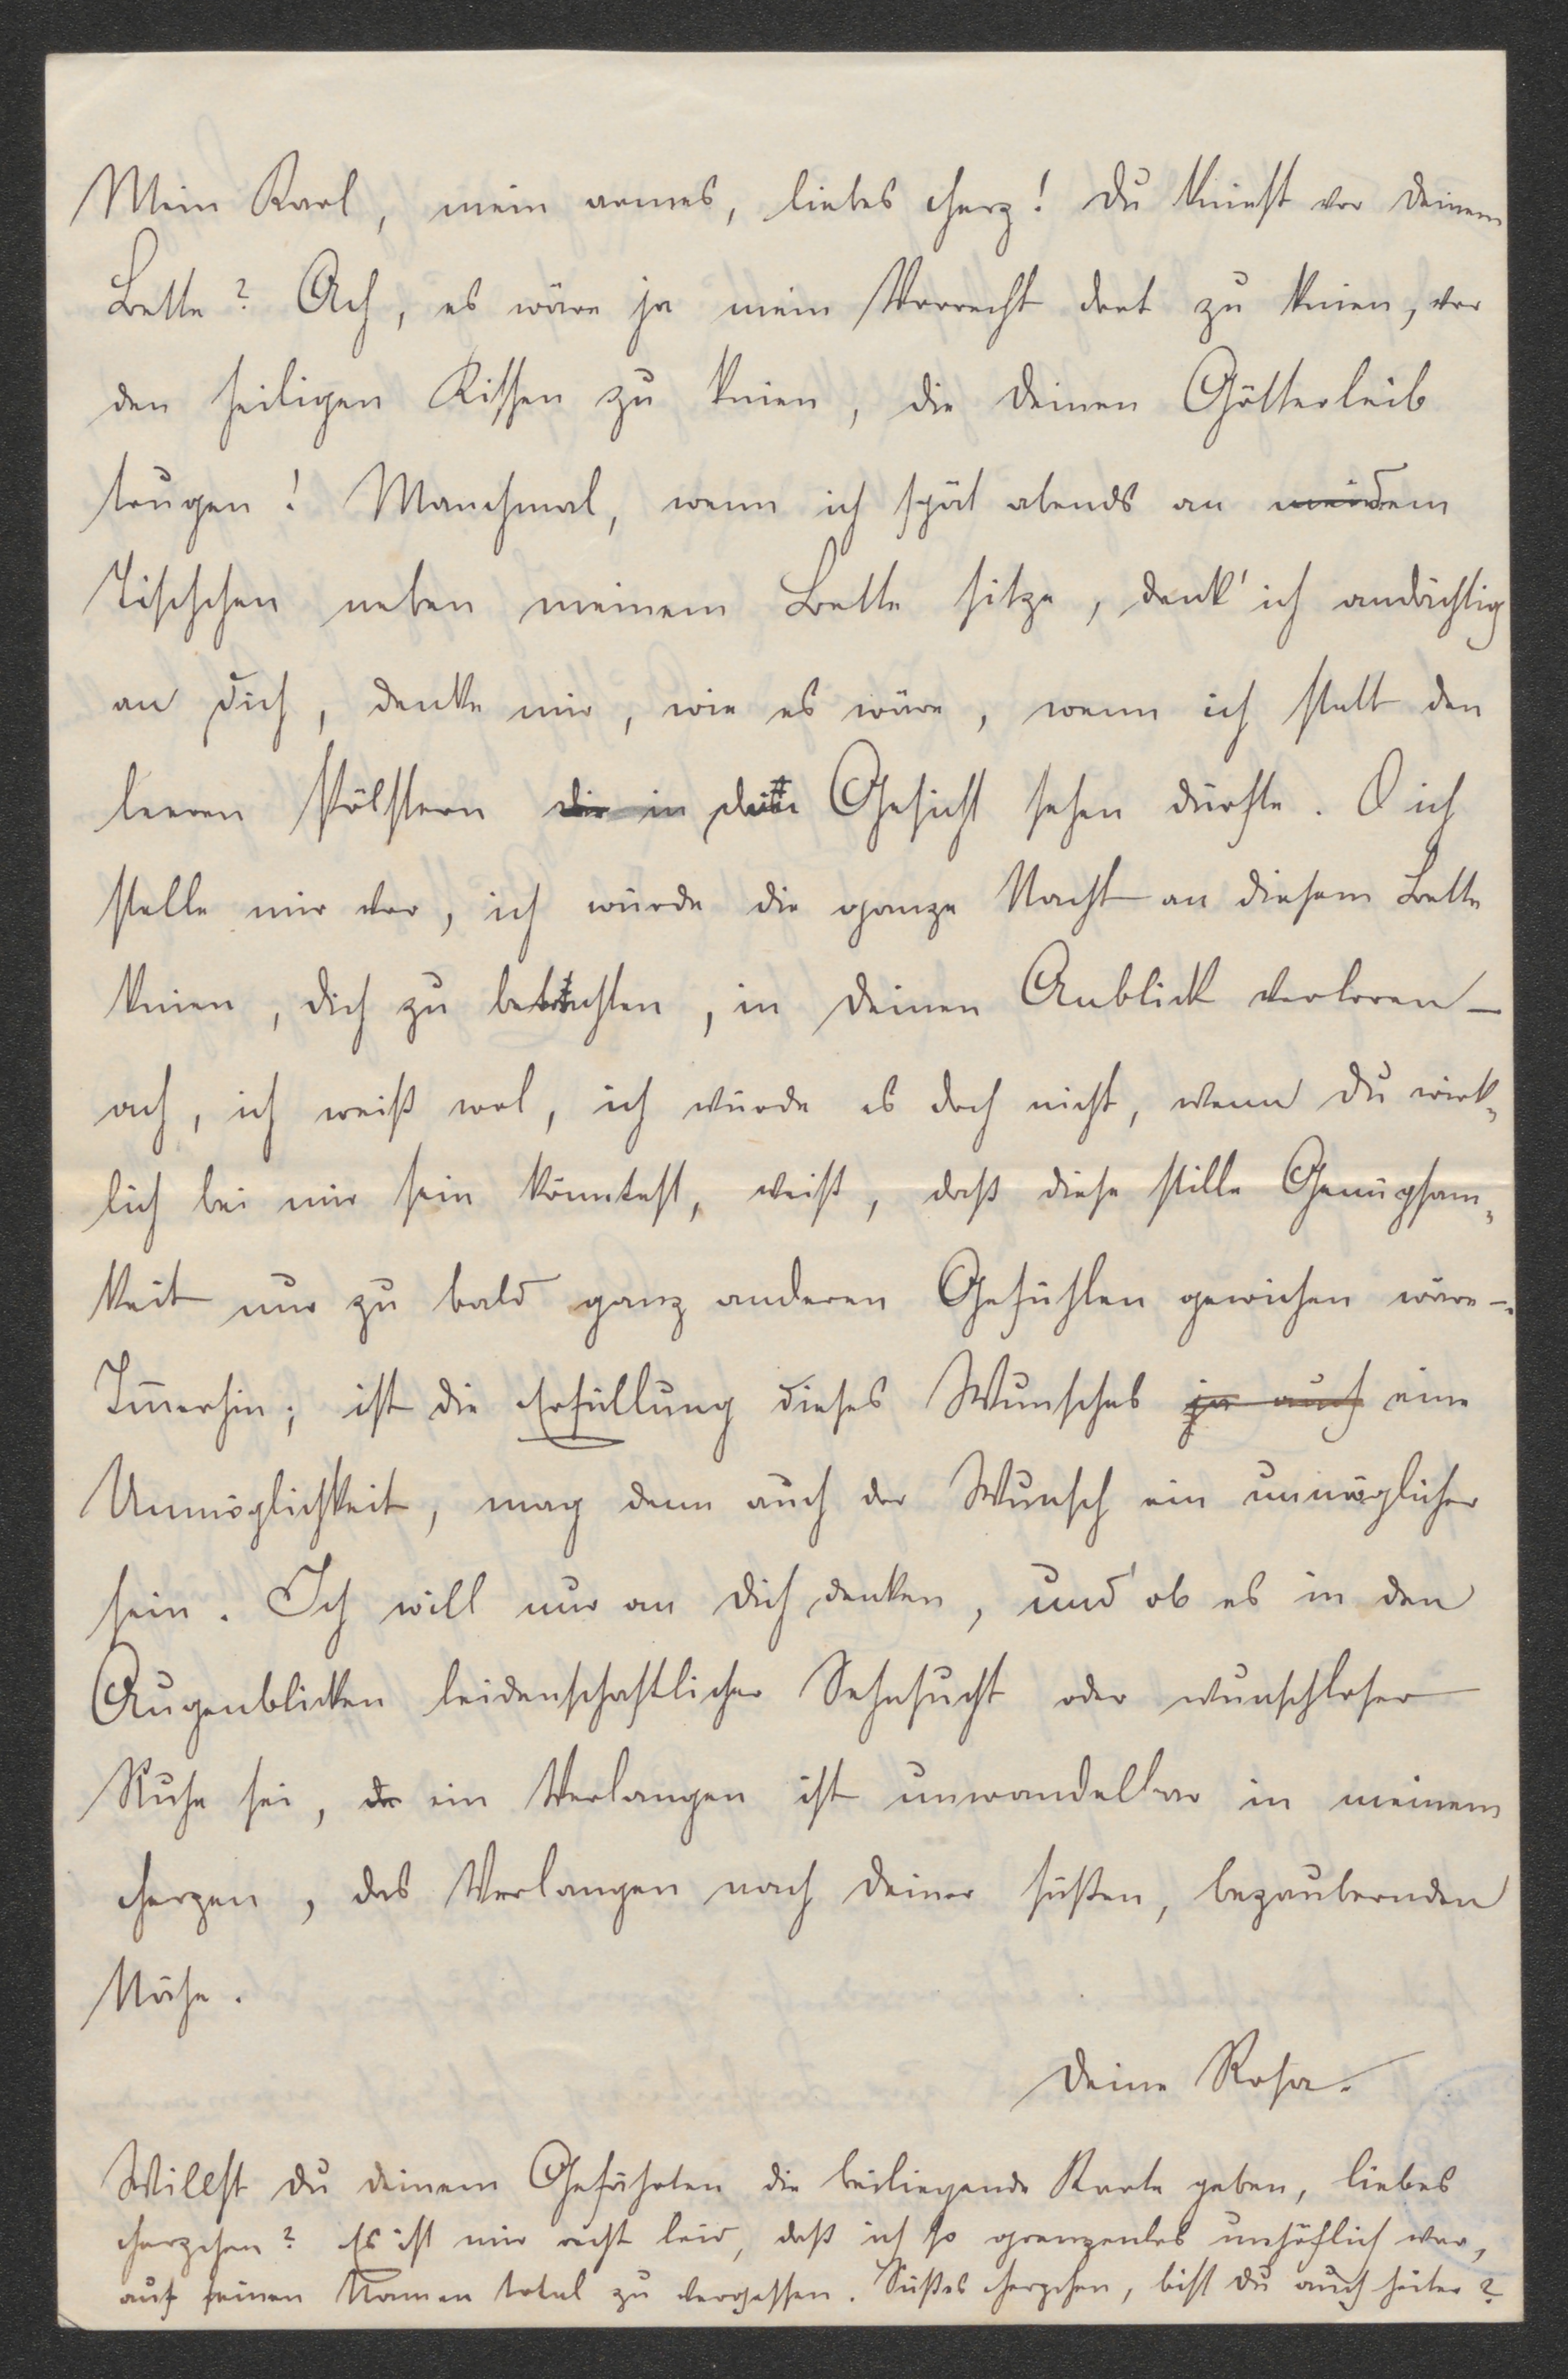 Mein Karl, mein armes, liebes Herz! Du kniest vor Deinem
Bette? Ach, es wäre ja mein Vorrecht dort zu knien, vor
den heiligen Kissen zu knien, die Deinen Götterleib
trugen! Manchmal, wenn ich spät abends an meidem
Tischchen neben meinem Bette sitze, denk' ich andächtig
an Dich, denke mir, wie es wäre, wenn ich statt den
leeren Pölstern dir in dein Gesicht sehen dürfte. O ich
stelle mir vor, ich würde die ganze Nacht an diesem Bette
knien, dich zu betrachten, in Deinen Anblick verloren –
ach, ich weiß wol, ich würde es doch nicht, wenn Du wirk-
lich bei mir sein könntest, weiß, daß diese stille Genügsam-
keit nur zu bald ganz anderen Gefühlen gewichen wäre –.
Im̅erhin; ist die Erfüllung dieses Wunsches ja auch eine
Unmöglichkeit, mag denn auch der Wunsch ein unmöglicher
sein. Ich will nur an Dich denken, und ob es in den
Augenblicken leidenschaftlicher Sehnsucht oder wunschloser
Ruhe sei, de ein Verlangen ist unwandelbar in meinem
Herzen, das Verlangen nach Deiner süßen, bezaubernden
Nähe.
Deine Rosa.
Willst Du Deinem Gefährten die beiliegende Karte geben, liebes
Herzchen? Es ist mir recht leid, daß ich so grenzenlos unhöflich war,
auf seinen Namen total zu vergessen. Süßes Herzchen, bist Du auch heiter?